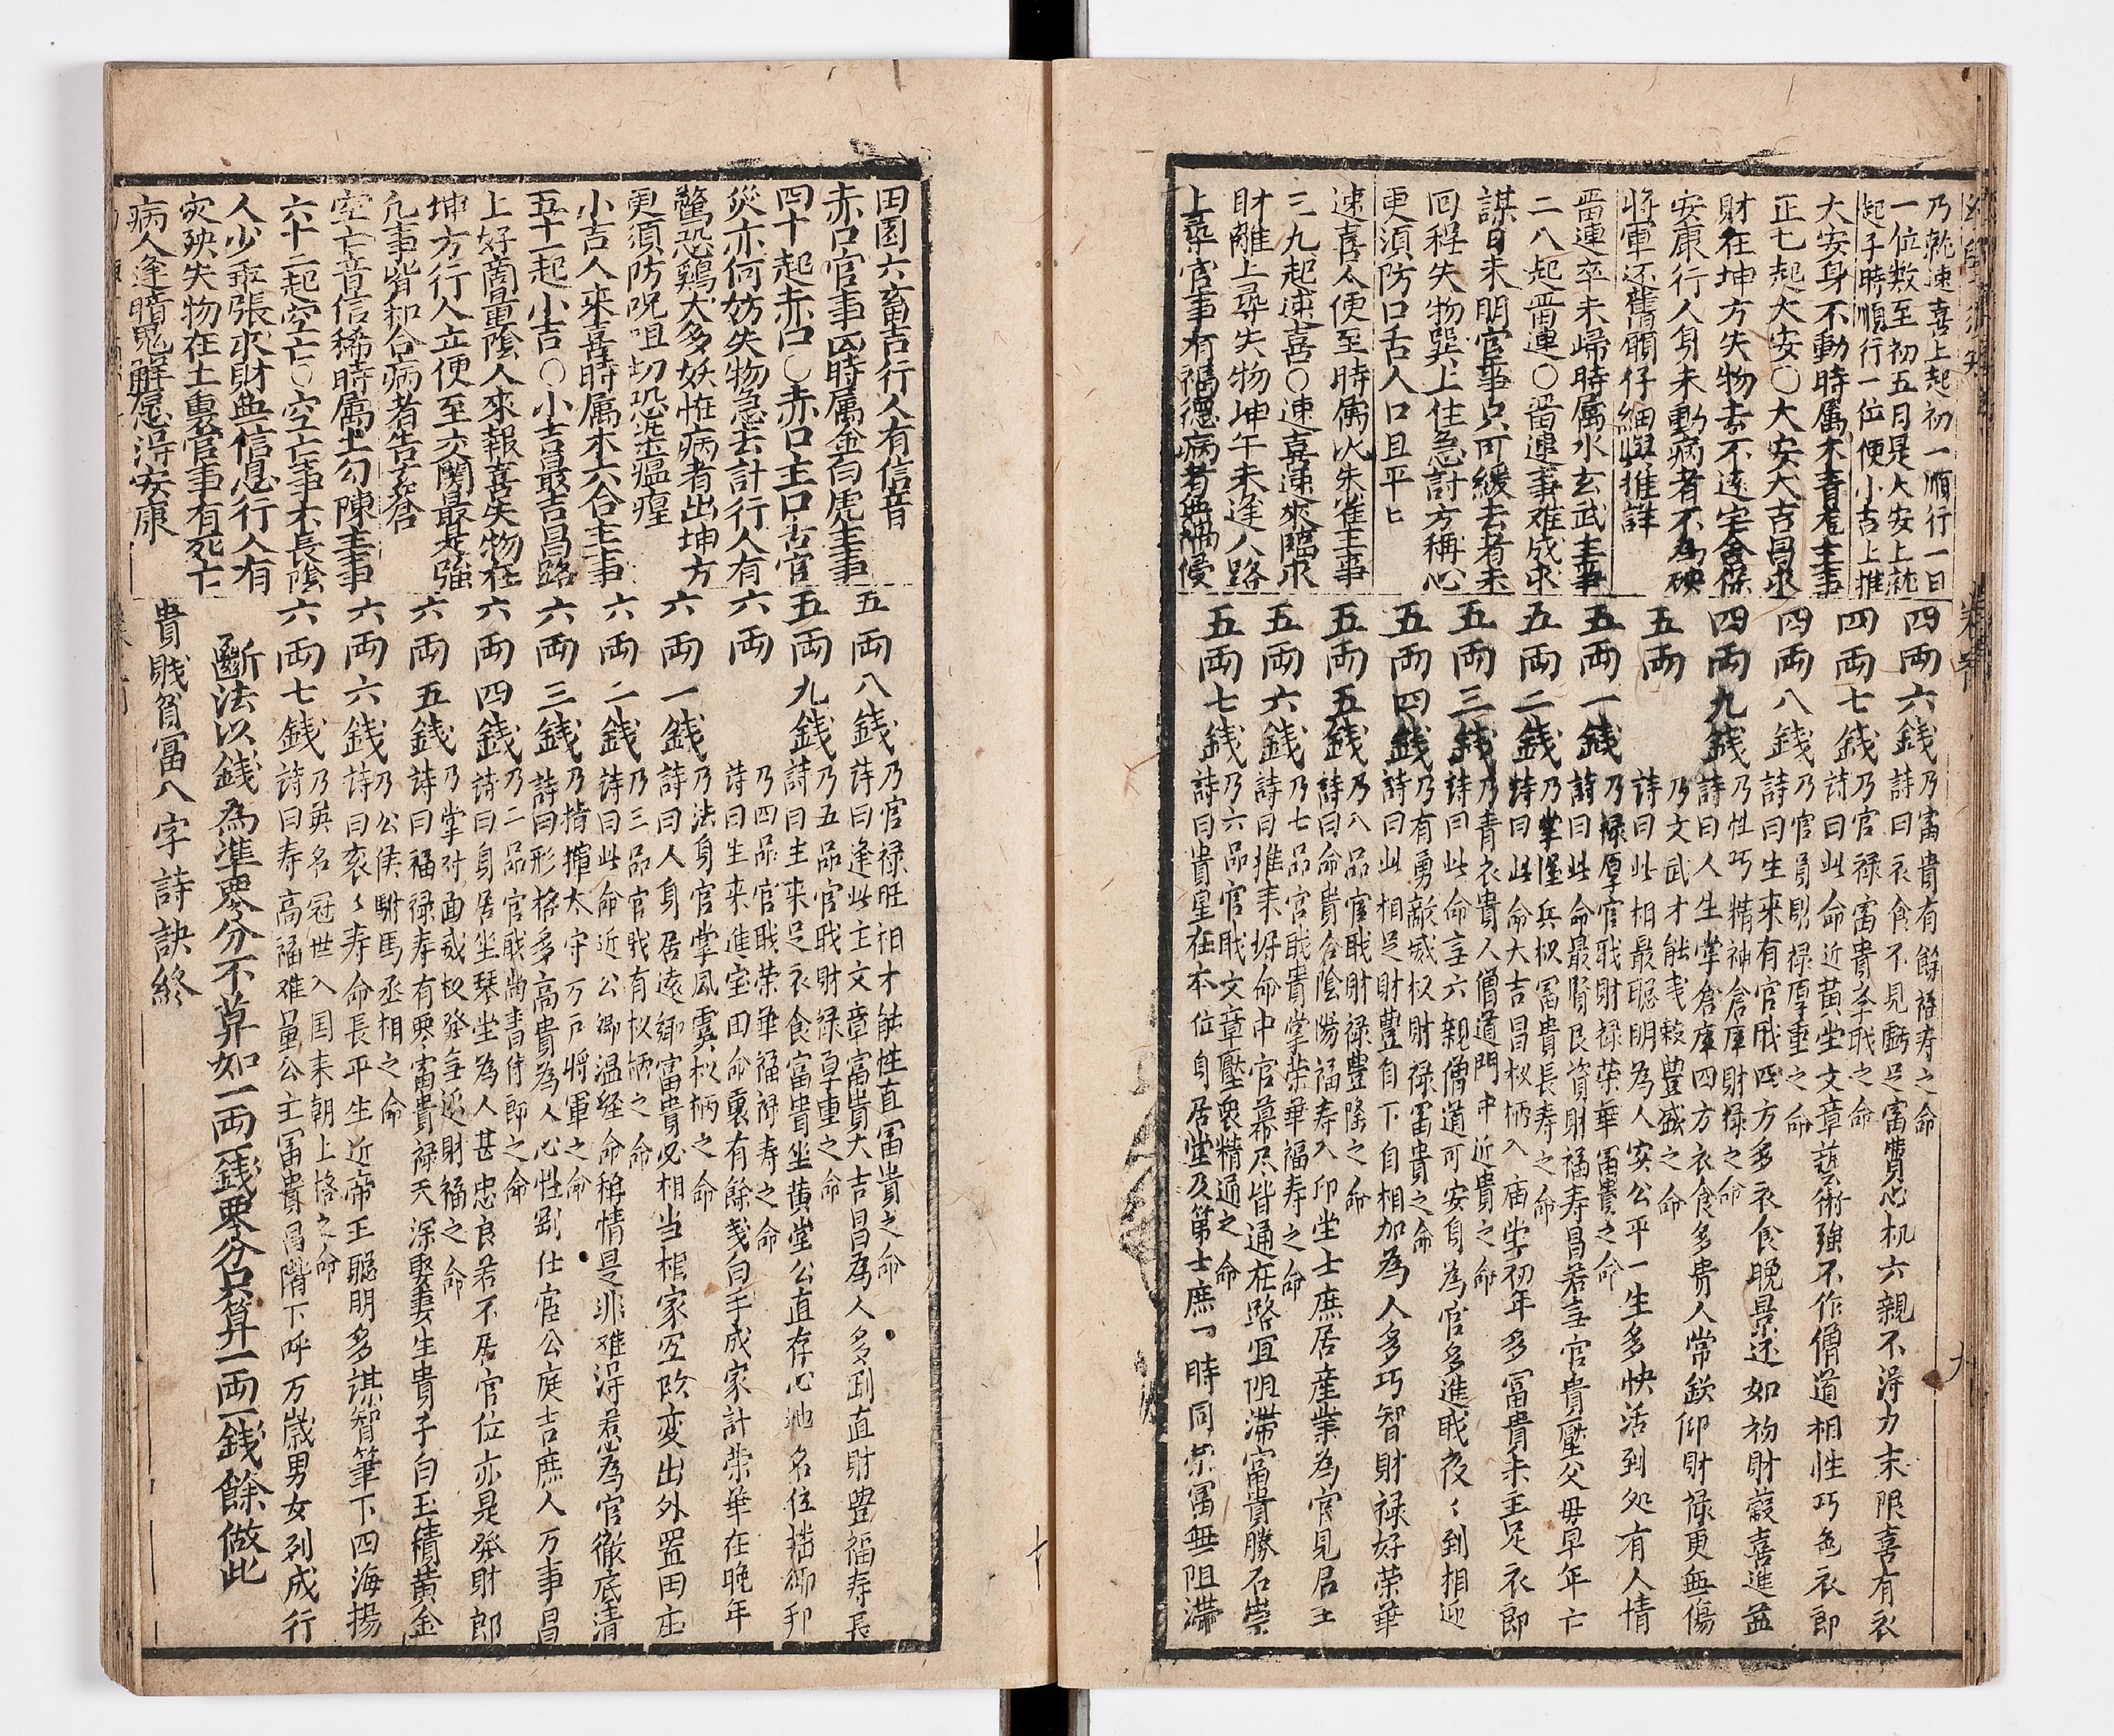 乃就速喜上起初一順行一日
一位数至初五日是大安上就
起子時順行一位便小吉上推
大安身不動時属木青龍主事
正七起大安〇大安大吉昌求
財在坤方失物去不遠宅舍保
安康行人身未動病者不為殃
将軍还舊願仔細與推詳
畱連卒未歸時属水玄武主事
二八起畱連〇畱連事难成求
謀日未明官事只可緩去者未
囬程失物巽上住急討方稱心
更須防口舌人口且平七
速喜人便至時属火朱雀主事
三九起速喜〇速喜速來臨求
財離上尋失物坤午未逢人路
上尋官事有福德病者無禍侵
四両六錢
乃富貴有餘福寿之命
詩曰衣食不見虧足富貴心机六親不淂力末限喜有衣
四両七錢
乃官禄富貴孝戝之命
詩曰此命近黄坐文章藝術強不作僧道相性巧危衣郎
四両八錢
乃官員財禄厚重之命
詩曰生來有官戝四方多衣食晚景还如初財穀喜進益
四両九錢
乃性巧精神倉庫財禄之命
詩曰人生掌倉庫四方衣食多貴人常欽仰財禄更無傷
五両
乃文武才能戔穀豐盛之命
詩曰此相最聪明為人实公平一生多快活到処有人情
五両一錢
乃禄厚官戝財禄荣華冨貴之命
詩曰此命最賢良資財福寿昌若言官貴壓父毋早年亡
五両二錢
乃掌握兵权冨貴長寿之命
詩曰此命大吉昌权柄入庙堂初年多冨貴末主足衣郎
五両三錢
乃青衣貴人僧道門中近貴之命
詩曰此命言六親僧道可安身為官多進戝夜〻到相迎
五両四錢
乃有勇敵威权財禄冨貴之命
詩曰此相足財豐自下自相加為人多巧智財禄好荣華
五両五錢
乃八品官戝財禄豊隆之命
詩曰命貴合陰陽福寿入卬堂士庶居産業為官見君王
五両六錢
乃七品官戝貴掌荣華福寿之命
詩曰推来好命中官幕尽皆通在路宜阻滞富貴勝石崇
五両七錢
乃六品官戝文章壓衆精通之命
詩曰貴星在本位自居堂及第士庶一時同荣冨無阻滯
田園六畜吉行人有信音
赤口官事凶時属金白虎主事
四十起赤口〇赤口主口舌官
災亦何妨失物急去討行人有
驚恐鷄犬多妖怪病者出坤方
更須防呪咀切恐染瘟瘟
小吉人來喜時属木六合主事
五十一起小吉〇小吉最吉昌路
上好啇量陰人來報喜失物在
坤方行人立便至交関最是強
凢事皆和合病者告穹倉
空亡音信稀時属土勾陳主事
六十二起空亡〇空亡事不長陰
人少乖張求財無信息行人有
灾殃失物在土裏官事有死亡
病人逢暗鬼解忌淂安康
五両八錢
乃官禄旺相才能性直冨貴之命
詩曰逢此主文章富貴大吉昌為人多刘直財豊福寿長
五両九錢
乃五品官戝財禄享重之命
詩曰主来足衣食富貴坐黄堂公直存心地名位描御邦
六両
乃四品官戝荣華福禄寿之命
詩曰生来進宝田命裏有餘戔白手成家計荣華在晚年
六両一錢
乃法身官掌風雲权柄之命
詩曰人身居遠鄉富貴必相当根家室改变出外置田庄
六両二錢
乃三品官戝有权柄之命
詩曰此命近公卿温経命稱情是非难淂惹為官徹底清
六両三錢
乃揹揎太守万户将軍之命
詩曰形格多高貴為人心性剛仕宦公庭吉庶人万事昌
六両四錢
乃二品官戝尚書侍郎之命
詩曰身居坐琴坐為人甚忠良若不居官位亦是発財郎
六両五錢
乃掌对面威权発年近財福之命
詩曰福禄寿有零富貴禄天深娶妻生貴子白玉積黄金
六両六錢
乃公侯駙馬丞相之命
詩曰衮〻寿命長平生近帝王聪明多謀智筆下四海揚
六両七錢
乃英名冠世入国来朝上格之命
詩曰寿高福难量公主冨貴昌階下呼万歳男女列成行
斷法以錢為準零分不算如一両一錢零分只算一両一錢餘做此
貴賎貧富八字詩訣終